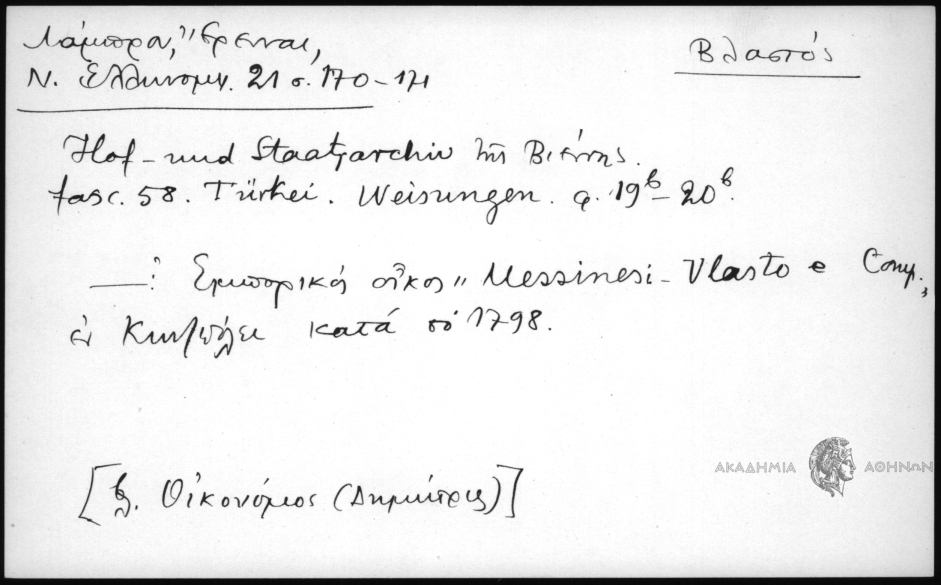 Λάμπρου, "Έρευναι,
Βλαστός
Ν. Ελληνομν. 21 σ. 170-171
Hof- und Staatsarchiv τῆς Βιέννης.
fasc. 58. Türkei. Weisungen. φ. 19b-20b.
—: Εμπορικός οἶκος "Messinesi-Vlasto e Comp.,
ἐν Κων/πόλει κατά τό 1798.
[βλ. Οἰκονόμος (Δημήτρις)]
ΑΚΑΔΗΜΙΑ ΑΘΗΝΩΝ